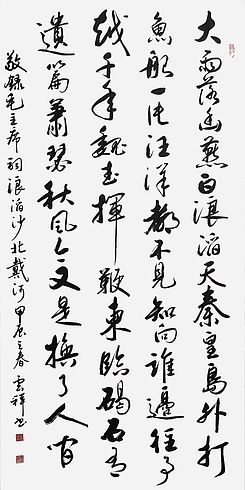 大雨落幽燕白浪滔天秦皇島外打
魚船一片汪洋都不見知向誰邊往事
越千年魏武揮鞭東臨碣石有
遺篇蕭瑟秋風今又是換了人間
敬錄毛主席詞浪淘沙北戴河甲辰之春雲祥書